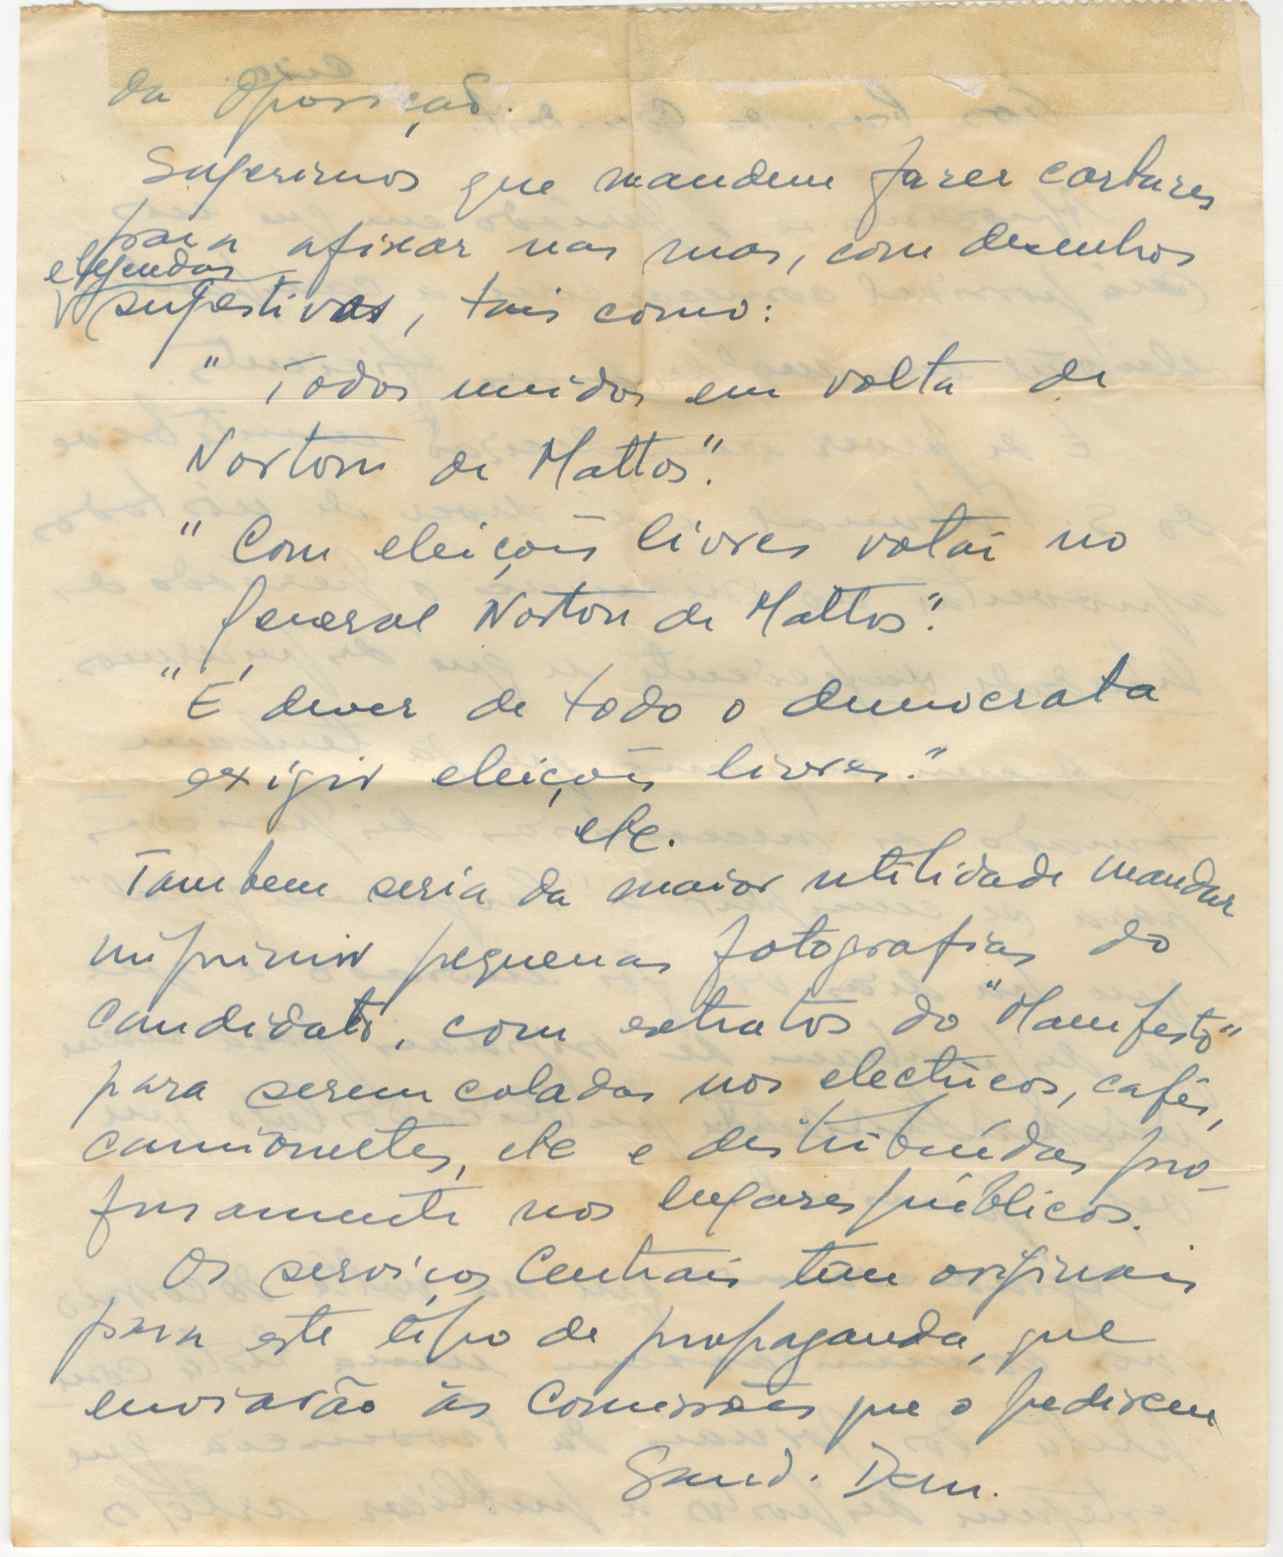 da Oposição.
Sugerimos que mandem fazer cartazes
para afixar nas ruas, com desenhos
e legendas
sugestivas, tais como:
" Todos unidos em volta de
Norton de Mattos".
" Com eleições livres votai no
general Norton de Mattos".
" É dever de todo o democrata
exigir eleições livres."
etc.
Tambem seria da maior utilidade mandar
imprimir pequenas fotografias do
candidato, com extratos do "Manifesto"
para serem coladas nos electricos, cafés,
camionetes, etc e distribuídas pro-
fusamente nos lugares públicos.
Os serviços Centrais têm originais
para este tipo de propaganda, que
enviarão às Comissões que o pedirem
Saud. Dem.